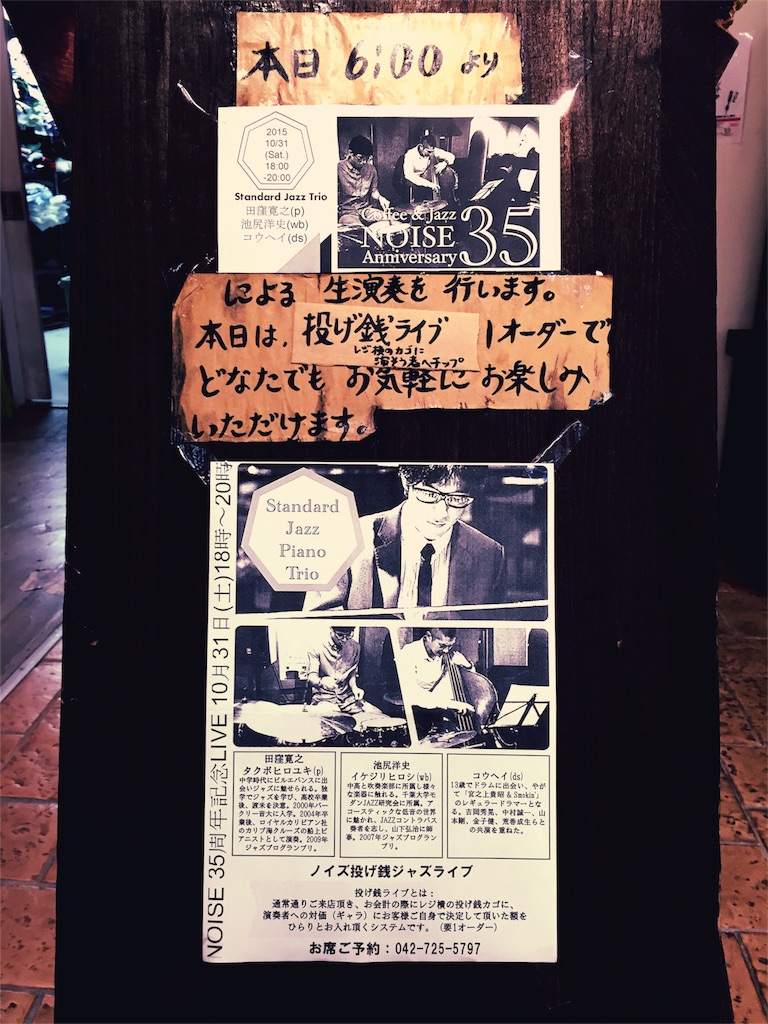 本日 6:00 より
2015
10/31
(Sat.)
18:00
-20:00
Standard Jazz Trio
田窪寛之(p)
池尻洋史(wb)
コウヘイ(ds)
Coffee & Jazz
NOISE 35
Anniversary
による 生演奏を 行います。
本日は、投げ銭ライブ 1オーダーで
レジ横のカゴに
演奏者へチップ
どなたでも お気軽に お楽しみ
いただけます。
NOISE 35周年記念LIVE 10月31日(土)18時〜20時
Standard
Jazz
Piano
Trio
田窪寛之
タクボヒロユキ(p)
中学時代にビルエバンスに出
会いジャズに魅せられる。独
学でジャズを学び、高校卒業
後、渡米を決意。2000年バー
クリー音大に入学。2004年卒
業後、ロイヤルカリビアン社
のカリブ海クルーズの船上ピ
アニストとして演奏。2009年
ジャズプログランプリ。
池尻洋史
イケジリヒロシ(wb)
中高と吹奏楽部に所属し様々
な楽器に触れる。千葉大学モ
ダンJAZZ研究会に所属。ア
コースティックな低音の世界
に魅かれ、JAZZコントラバス
奏者を志し、山下弘治に師
事。2007年ジャズプログラン
プリ。
コウヘイ(ds)
13歳でドラムに出会い、やが
て「宮之上貴昭 & Smokin'」
のレギュラードラマーとな
る。吉岡秀晃、中村誠一、山
本剛、金子健、荒巻成生らと
の共演を重ねた。
ノイズ投げ銭ジャズライブ
投げ銭ライブとは：
通常通りご来店頂き、お会計の際にレジ横の投げ銭カゴに、
演奏者への対価（ギャラ）にお客様ご自身で決定して頂いた額を
ひらりとお入れ頂くシステムです。（要1オーダー）
お席ご予約：042-725-5797